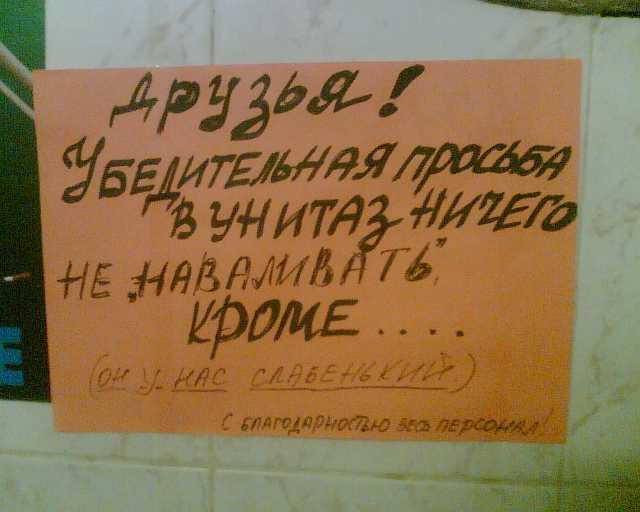 ДРУЗЬЯ!
УБЕДИТЕЛЬНАЯ ПРОСЬБА
В УНИТАЗ НИЧЕГО
НЕ „НАВАЛИВАТЬ",
КРОМЕ....
(ОН У НАС СЛАБЕНЬКИЙ.)
С БЛАГОДАРНОСТЬЮ ВЕСЬ ПЕРСОНАЛ!